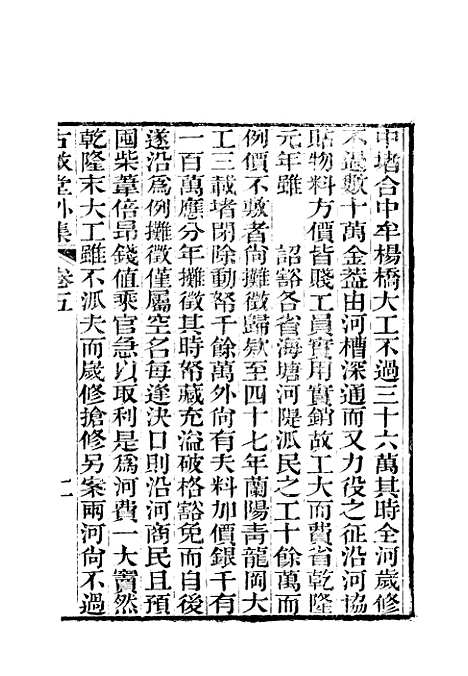 中堵合中牟楊橋大工不過三十六萬其時全河歲修
不過數十萬金葢由河槽深通而又力役之征沿河協
貼物料方價皆賤工員實用實銷故工大而費省乾隆
元年雖 詔豁各省海塘河隄派民之工十餘萬而
例價不敷者尙攤徵歸欵至四十七年蘭陽靑龍岡大
工三載堵閉除動帑千餘萬外尙有夫料加價銀千有
一百萬應分年攤徵其時帑藏充溢破格豁免而自後
遂沿爲例攤徵僅屬空名每逢決口則沿河商民且預
囤柴葦倍昂錢值乘官急以取利是爲河費一大竇然
乾隆末大工雖不派夫而歲修搶修另案兩河尙不過
古微堂外集 卷五